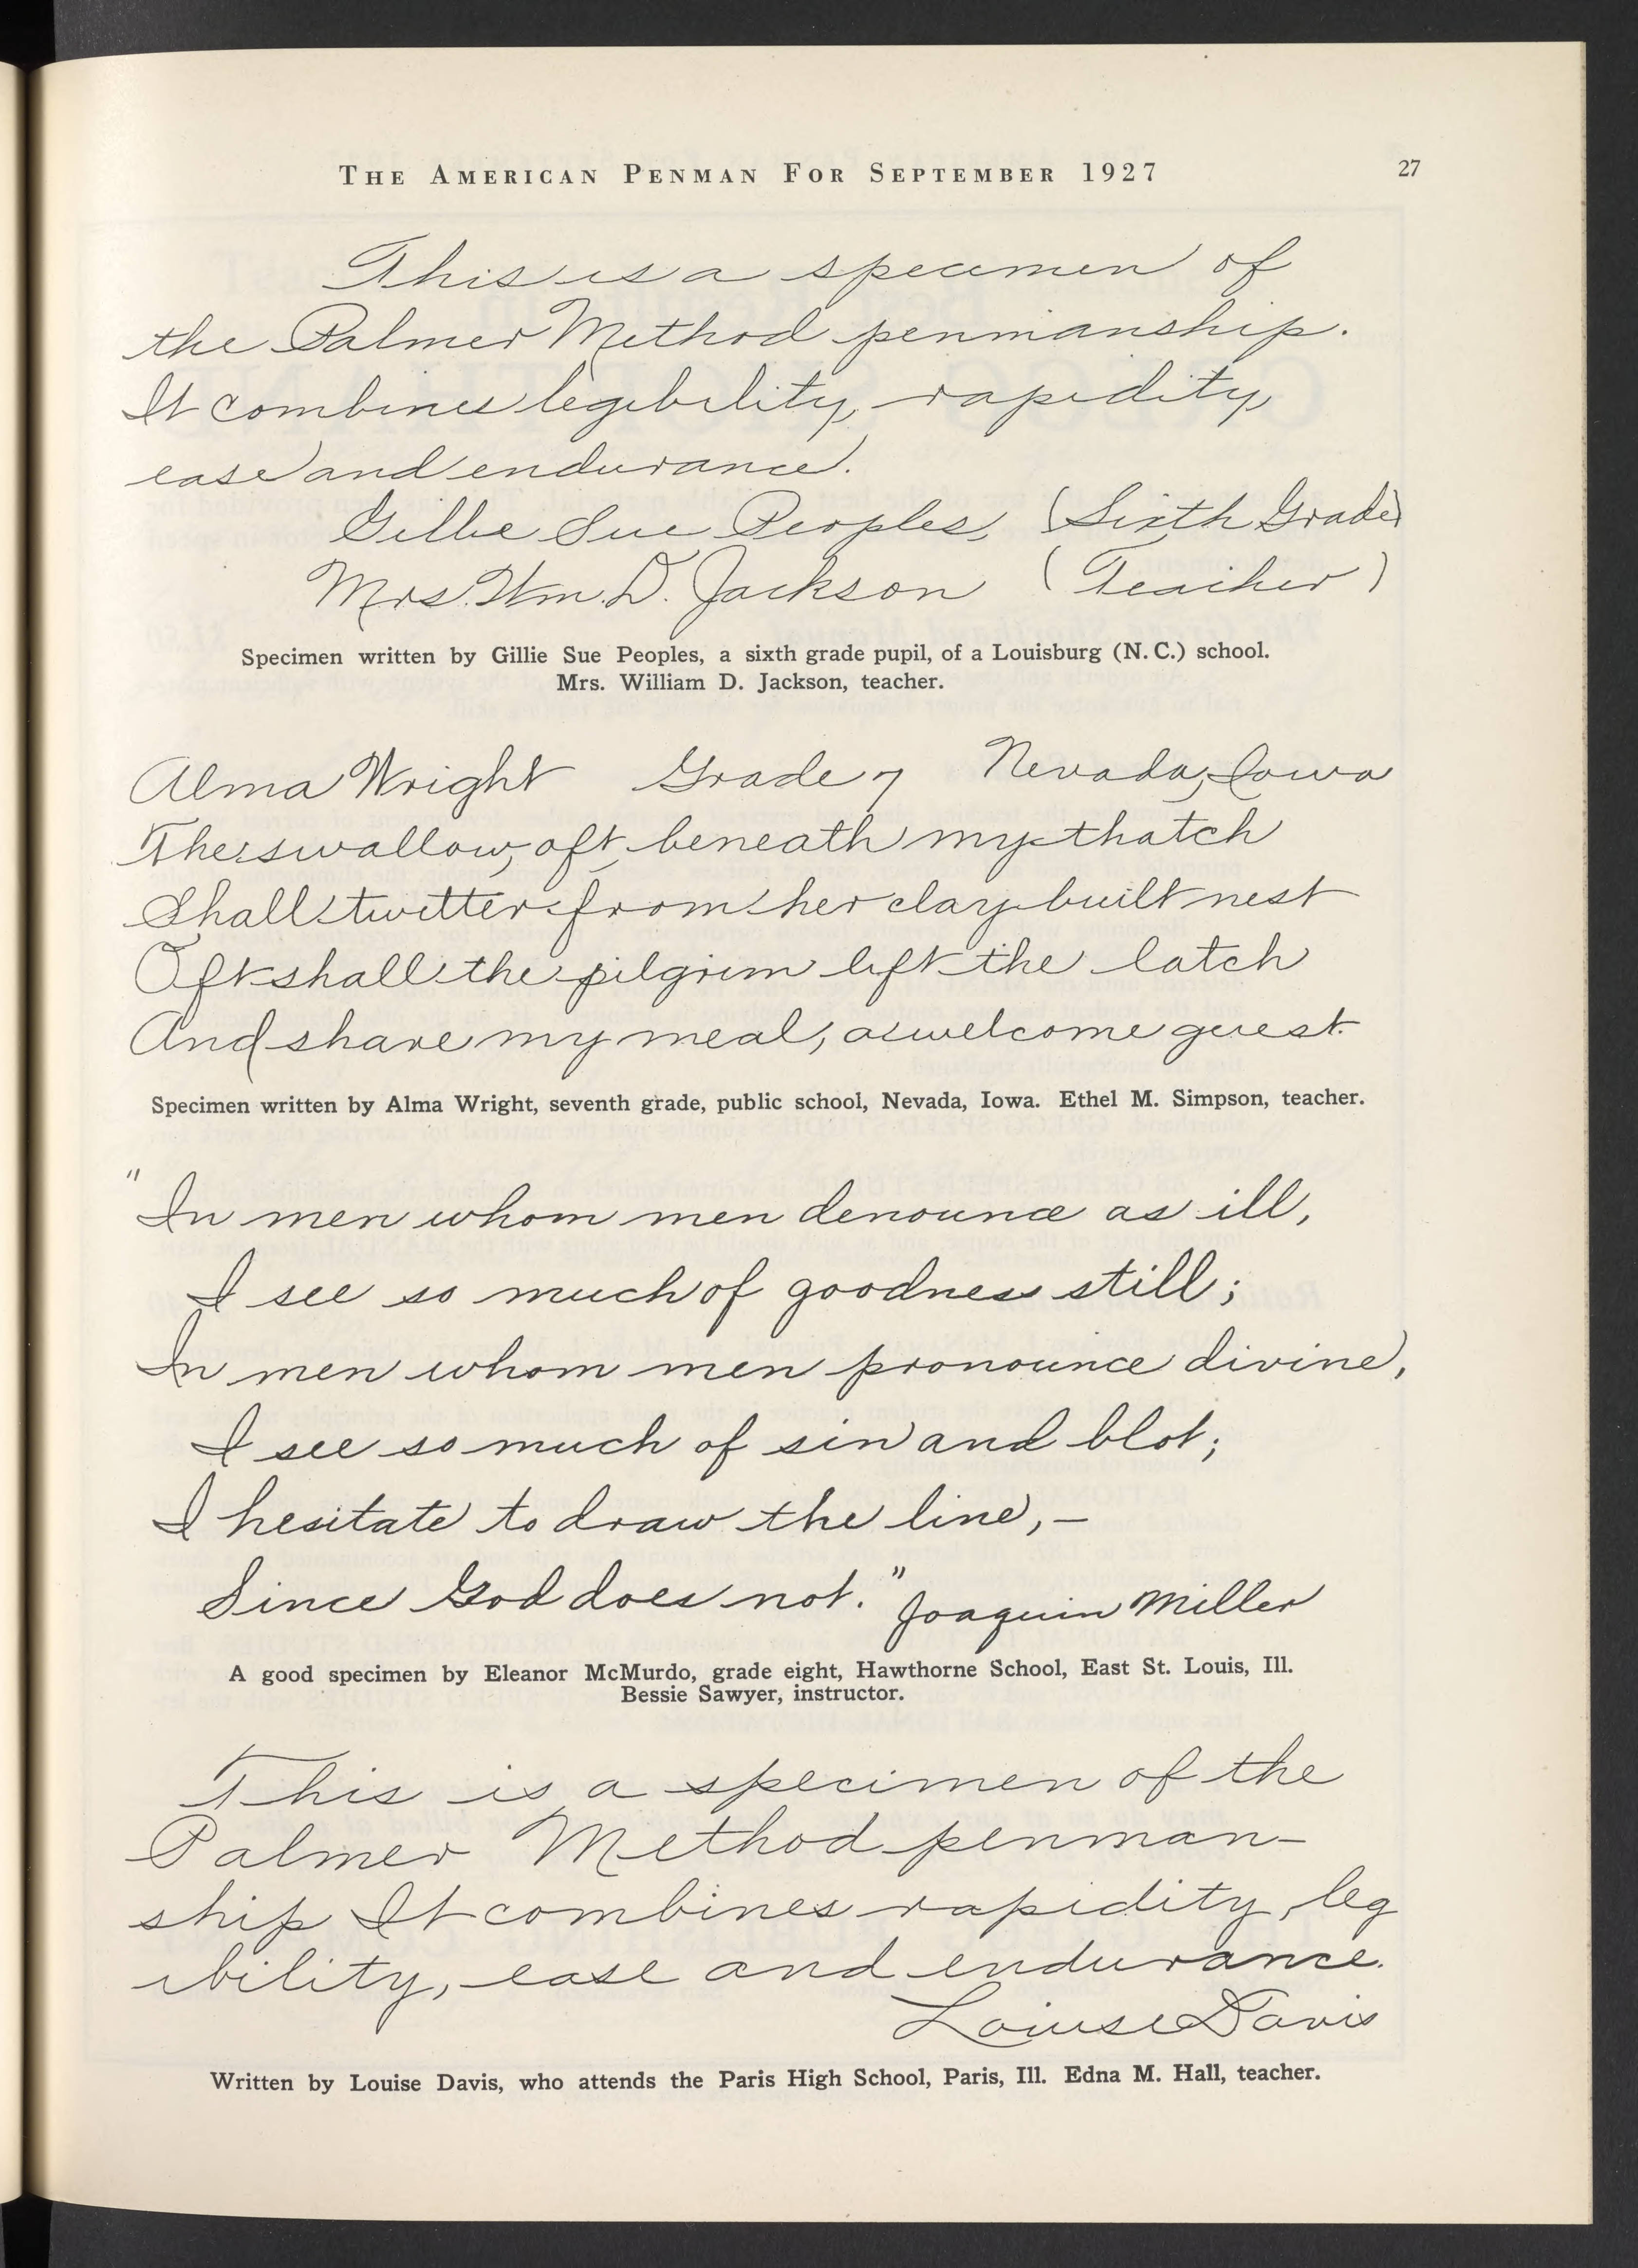 THE AMERICAN PENMAN FOR SEPTEMBER 1927 27
This is a specimen of
the Palmer Method penmanship.
It combines legibility, rapidity,
ease and endurance.
Gillie Sue Peoples, (Sixth Grade)
Mrs. Wm. D. Jackson (Teacher)
Specimen written by Gillie Sue Peoples, a sixth grade pupil, of a Louisburg (N. C.) school.
Mrs. William D. Jackson, teacher.
Alma Wright Grade 7 Nevada, Iowa
The swallow, oft, beneath my thatch
Shall twitter from her clay built nest
Oft shall the pilgrim lift the latch
And share my meal, a welcome guest.
Specimen written by Alma Wright, seventh grade, public school, Nevada, Iowa. Ethel M. Simpson, teacher.
"In men whom men denounce as ill,
I see so much of goodness still;
In men whom men pronounce divine,
I see so much of sin and blot;
I hesitate to draw the line,—
Since God does not." Joaquin Miller
A good specimen by Eleanor McMurdo, grade eight, Hawthorne School, East St. Louis, Ill.
Bessie Sawyer, instructor.
This is a specimen of the
Palmer Method penman-
ship It combines rapidity, leg
ibility, ease and endurance.
Louise Davis
Written by Louise Davis, who attends the Paris High School, Paris, Ill. Edna M. Hall, teacher.